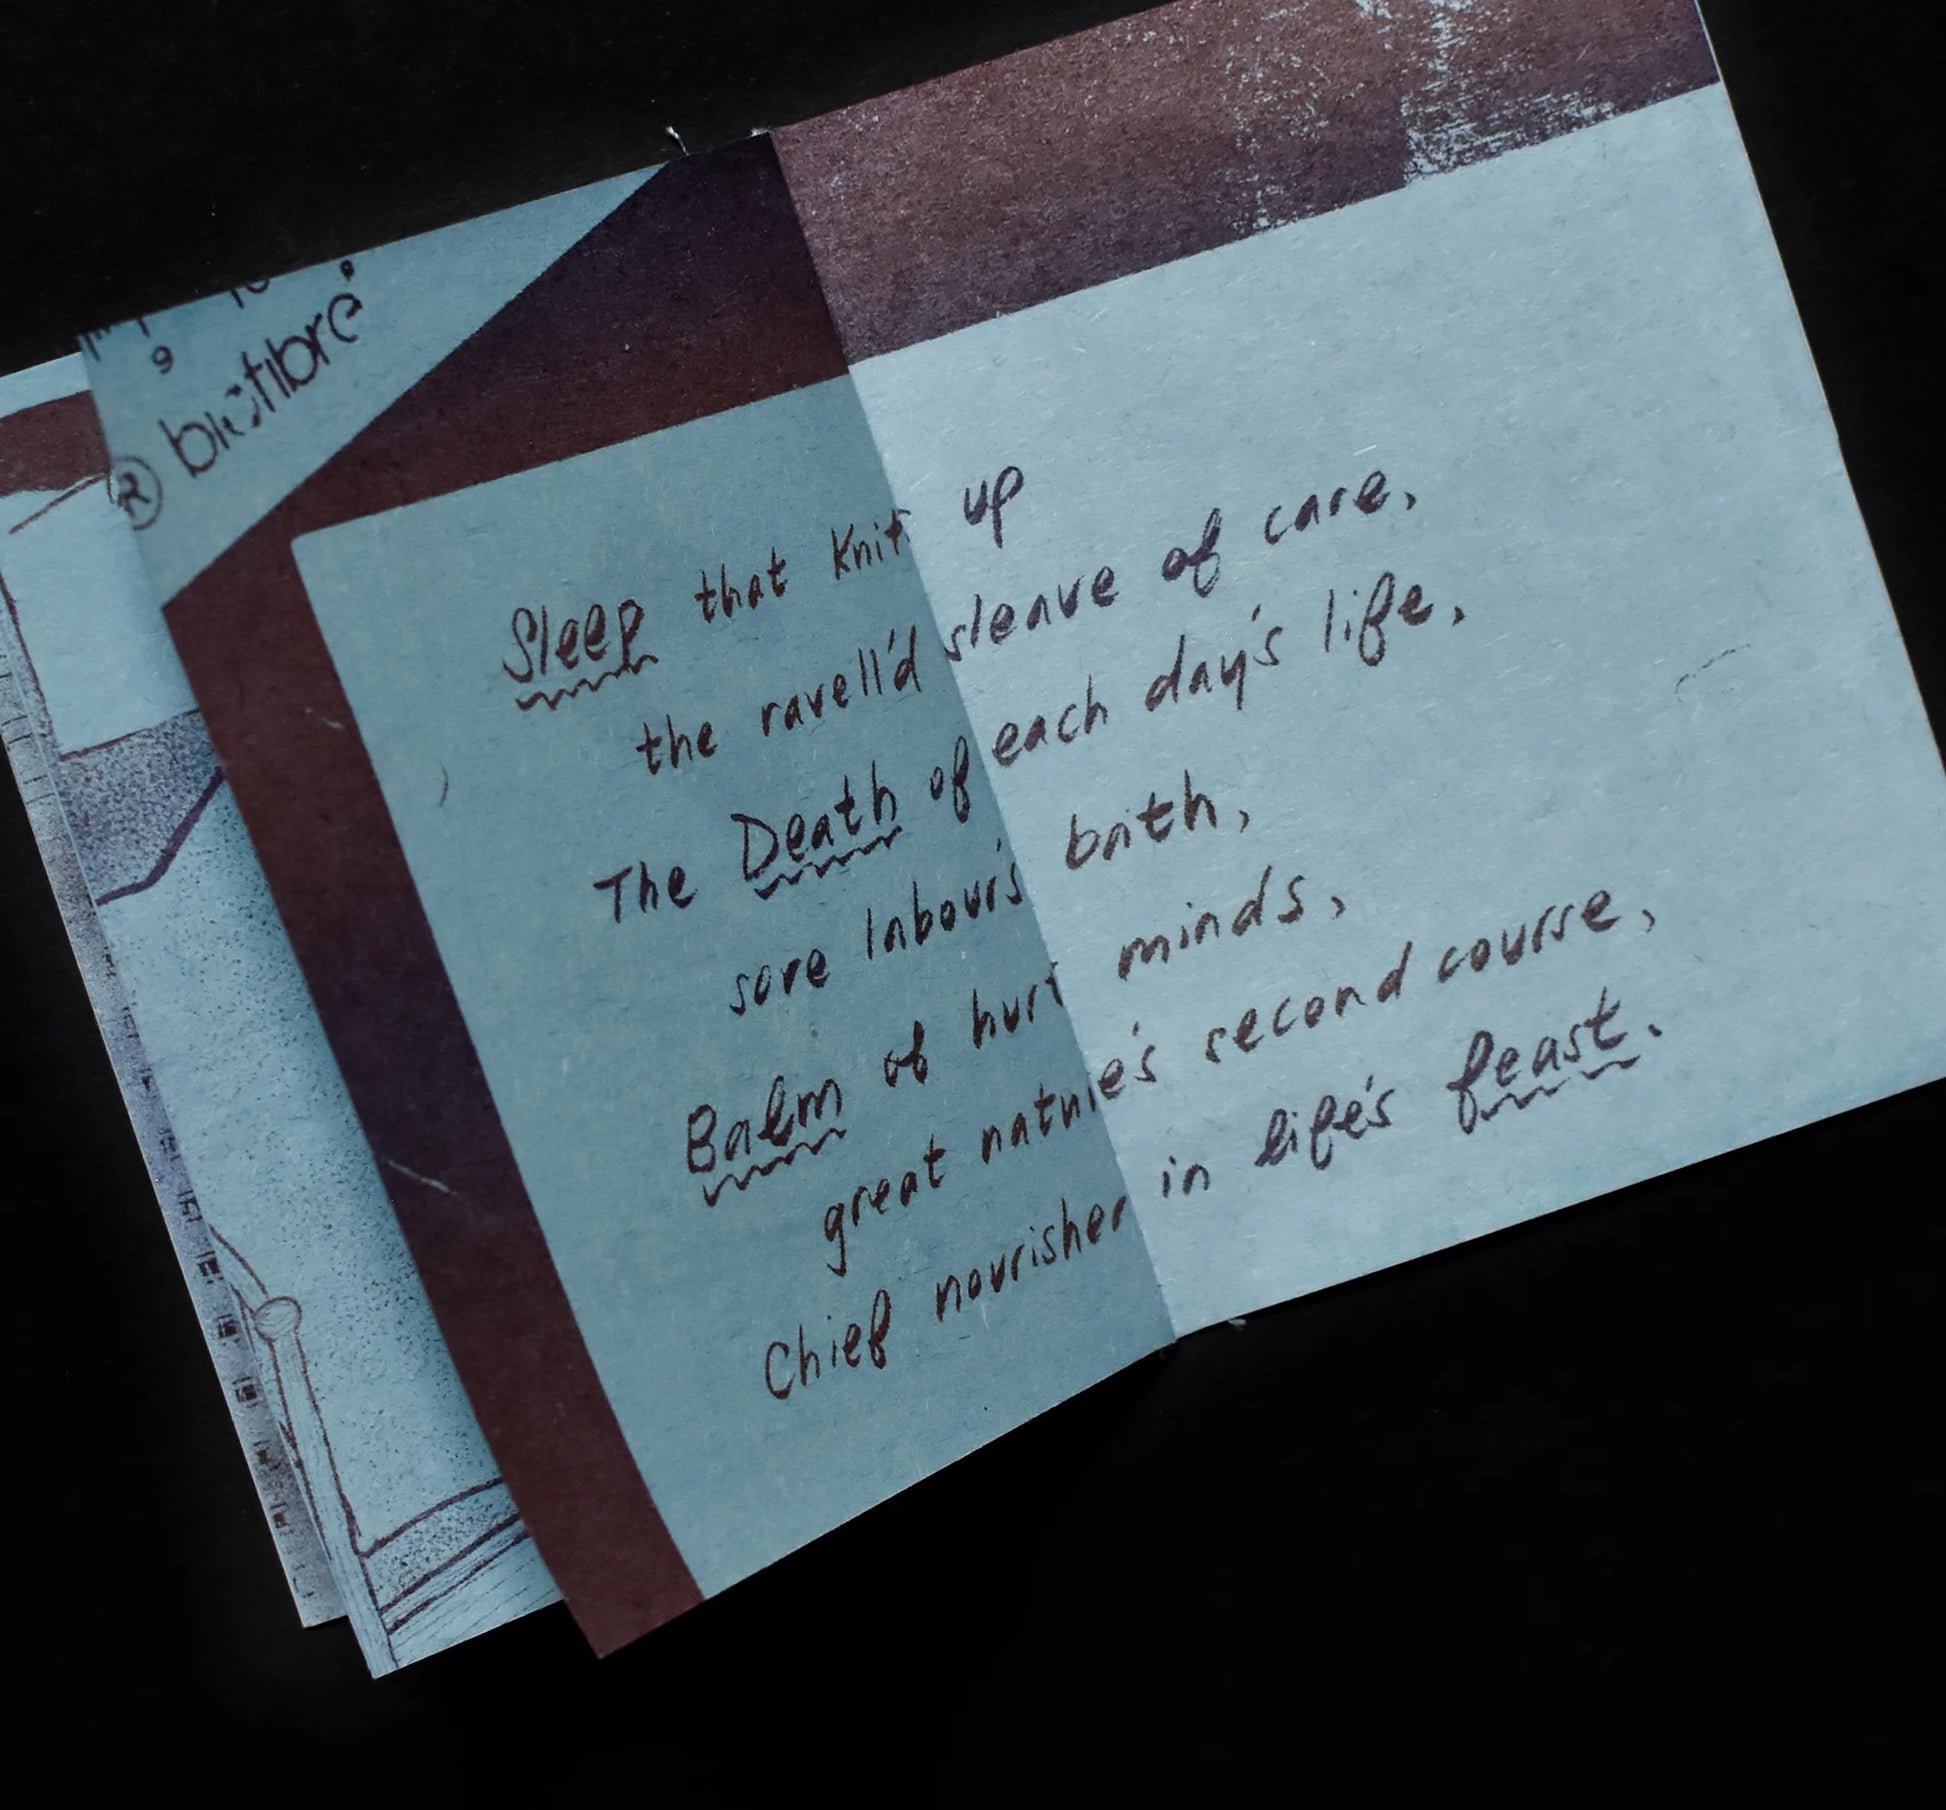 Sleep that Knit up
the ravell'd sleave of care,
The Death of each day's life,
sore labour's bath,
Balm of hurt minds,
great nature's second course,
Chief nourisher in life's feast.